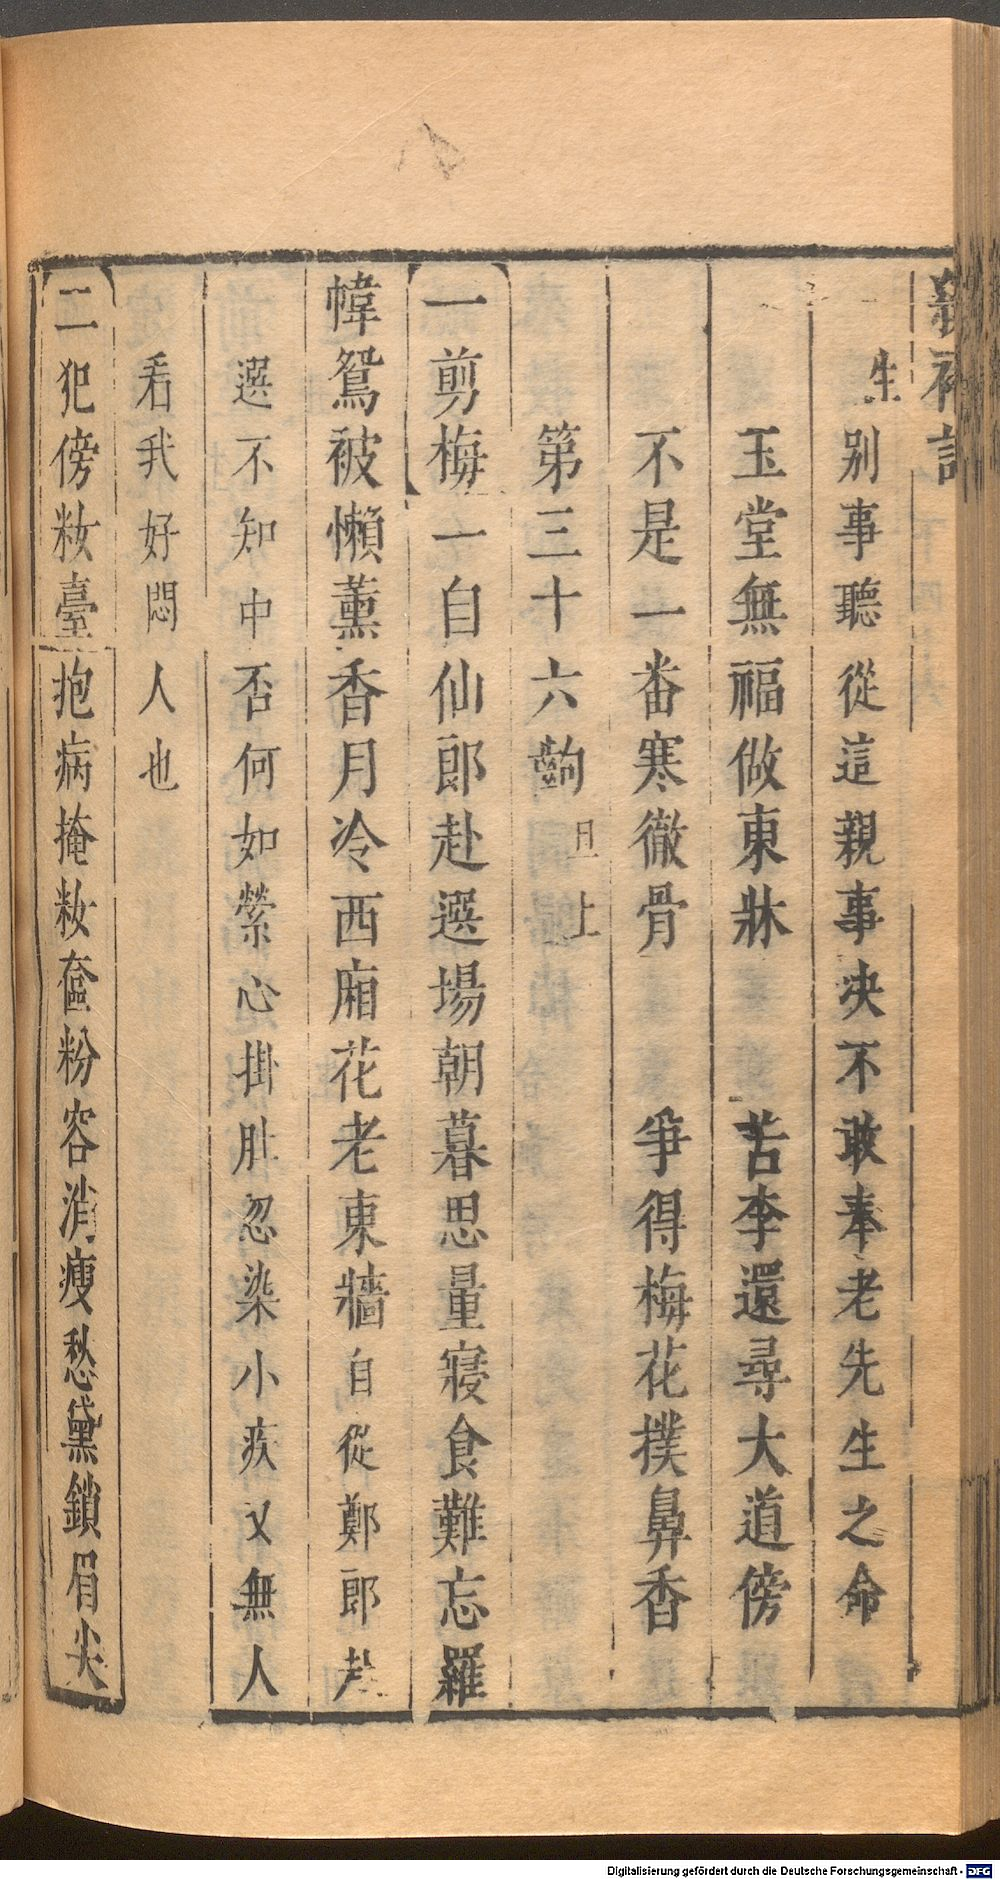 繡襦記
生 别事聽從這親事决不敢奉老先生之命
玉堂無福做東牀 苦李還尋大道傍
不是一畨寒徹骨 爭得梅花撲鼻香
第三十六齣 旦上
一剪梅 一自仙郎赴選場朝暮思量寢食難忘羅
幃鴛被懶薰香月冷西廂花老東牆 自從鄭郎赴
選不知中否何如縈心掛肚忽染小疾又無人
看我好悶人也
二犯傍粧臺 抱病掩粧奩粉容消瘦愁黛鎖眉尖
Digitalisierung gefördert durch die Deutsche Forschungsgemeinschaft - DFG